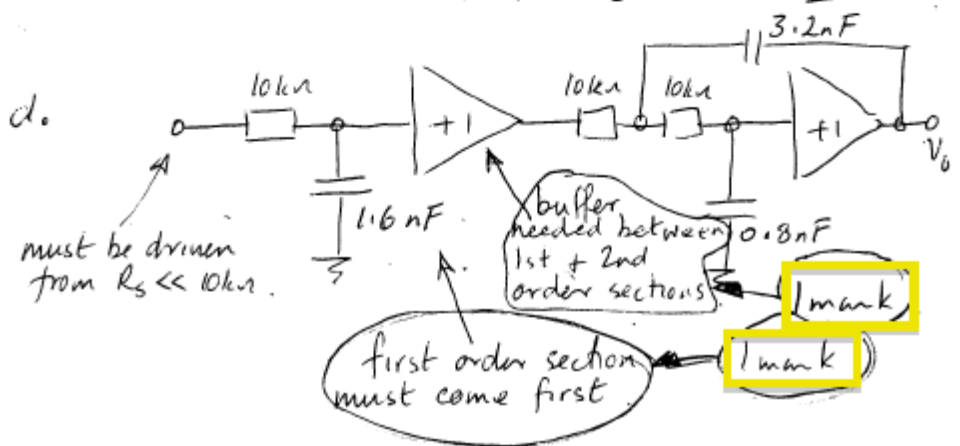 3.2nF
d.
10kΩ
+1
10kΩ
10kΩ
+1
V₀
1.6nF
0.8nF
must be driven
from Rs << 10kΩ.
buffer
needed between
1st + 2nd
order sections
1 mark
first order section
must come first
1 mark